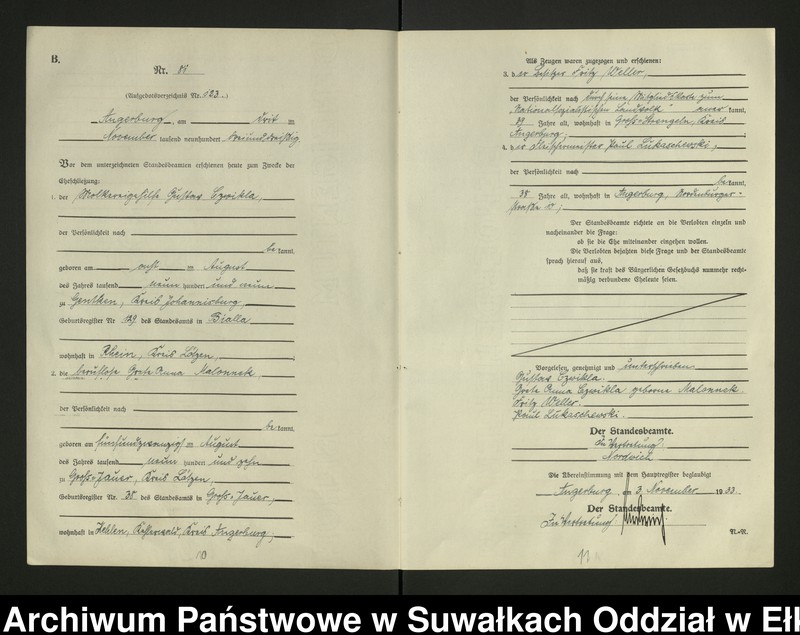 B.
Nr.
(Aufgebotsverzeichnis Nr. 123.)
Angerburg, am drit en
November tausend neunhundert dreiunddreißig.
Vor dem unterzeichneten Standesbeamten erschienen heute zum Zwecke der
Eheschließung:
1. der Molkereigehilfe Gustav Czwikla,
der Persönlichkeit nach
be kannt,
geboren am acht en August
des Jahres tausend neun hundert und neun
zu Gentken, Kreis Johannisburg,
Geburtsregister Nr. 129 des Standesamts in Bialla,
wohnhaft in Rhein, Kreis Lötzen,
2. die berufslose Grete Anna Malonnek
der Persönlichkeit nach
be kannt,
geboren am fünfundzwanzigst en August
des Jahres tausend neun hundert und zehn
zu Groß-Jauer, Kreis Lötzen,
Geburtsregister Nr. 38 des Standesamts in Groß-Jauer,
wohnhaft in Kreis Angerburg,
10
Als Zeugen waren zugezogen und erschienen:
3. der Besitzer Fritz Weller,
der Persönlichkeit nach durch seine Mitgliedskarte zum
Nationalsozialistischen Landvolk aner kannt,
Jahre alt, wohnhaft in Groß-Strengeln, Kreis
Angerburg;
4. der Fleischermeister Paul Lukaschewski,
der Persönlichkeit nach
be kannt,
38 Jahre alt, wohnhaft in Angerburg, Nordenburger-
straße
Der Standesbeamte richtete an die Verlobten einzeln und
nacheinander die Frage:
ob sie die Ehe miteinander eingehen wollen.
Die Verlobten bejahten diese Frage und der Standesbeamte
sprach hierauf aus,
daß sie kraft des Bürgerlichen Gesetzbuchs nunmehr recht-
mäßig verbundene Eheleute seien.
Vorgelesen, genehmigt und unterschrieben
Gustav Czwikla.
Grete Anna Czwikla geborene Malonnek
Fritz Weller.
Paul Lukaschewski.
Der Standesbeamte.
In Vertretung
Die Übereinstimmung mit dem Hauptregister beglaubigt
Angerburg, am 3. November 1933.
Der Standesbeamte.
In Vertretung
11
Archiwum Państwowe w Suwałkach Oddział w Ełk